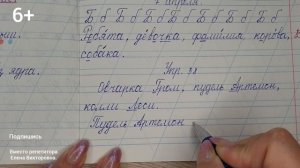 6+
7 апреля.
Б б Б б Б б Б б Б б Б б Б б
Ребята, девочка, фамилия, корова,
собака.
Упр. 38
Овчарка Гром, пудель Артемон,
колли Леси.
Пудель Артемон
ядра.
Подпишись
Вместо репетитора
Елена Викторовна.